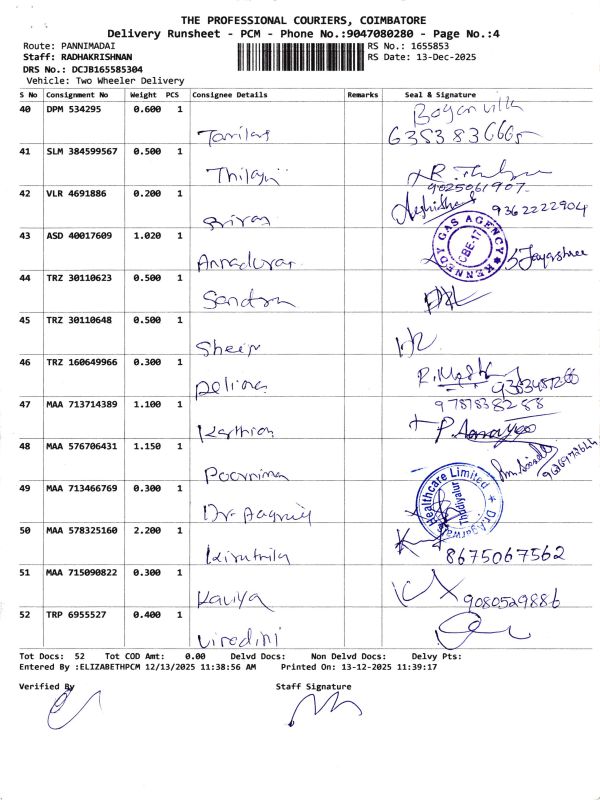 THE PROFESSIONAL COURIERS, COIMBATORE
Delivery Runsheet - PCM - Phone No.:9047080280 - Page No.:4
Route: PANNIMADAI RS No.: 1655853
Staff: RADHAKRISHNAN RS Date: 13-Dec-2025
DRS No.: DCJB165585304
Vehicle: Two Wheeler Delivery
S No Consignment No Weight PCS Consignee Details Remarks Seal & Signature
40 DPM 534295 0.600 1
6353836665
41 SLM 384599567 0.500 1
Thilagi
9025061907
42 VLR 4691886 0.200 1
9362222904
43 ASD 40017609 1.020 1
KENNEDY GAS AGENCY CBE-17
Annadurai
S Jayashree
44 TRZ 30110623 0.500 1
45 TRZ 30110648 0.500 1
46 TRZ 160649966 0.300 1
47 MAA 713714389 1.100 1
9787838288
Karthick
48 MAA 576706431 1.150 1
Poornima
49 MAA 713466769 0.300 1
Dr. Agarwal Healthcare Limited Thudiyalur
50 MAA 578325160 2.200 1
8675067562
51 MAA 715090822 0.300 1
Kaviya
9080529886
52 TRP 6955527 0.400 1
Vinodini
Tot Docs: 52 Tot COD Amt: 0.00 Delvd Docs: Non Delvd Docs: Delvy Pts:
Entered By :ELIZABETHPCM 12/13/2025 11:38:56 AM Printed On: 13-12-2025 11:39:17
Verified By Staff Signature